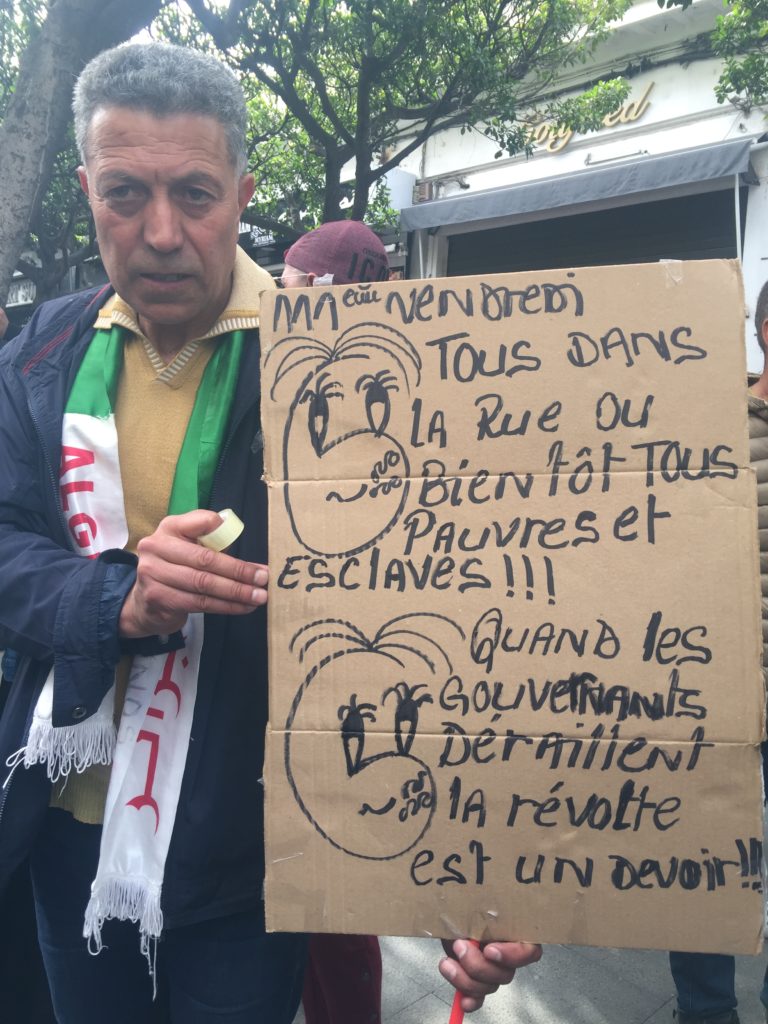 111ème VENDREDI
TOUS DANS
LA RUE OU
BIENTÔT TOUS
PAUVRES et
ESCLAVES !!!
QUAND les
GOUVERNANTS
DÉRAILLENT
lA révolte
est UN DEVOIR!!!
ALG